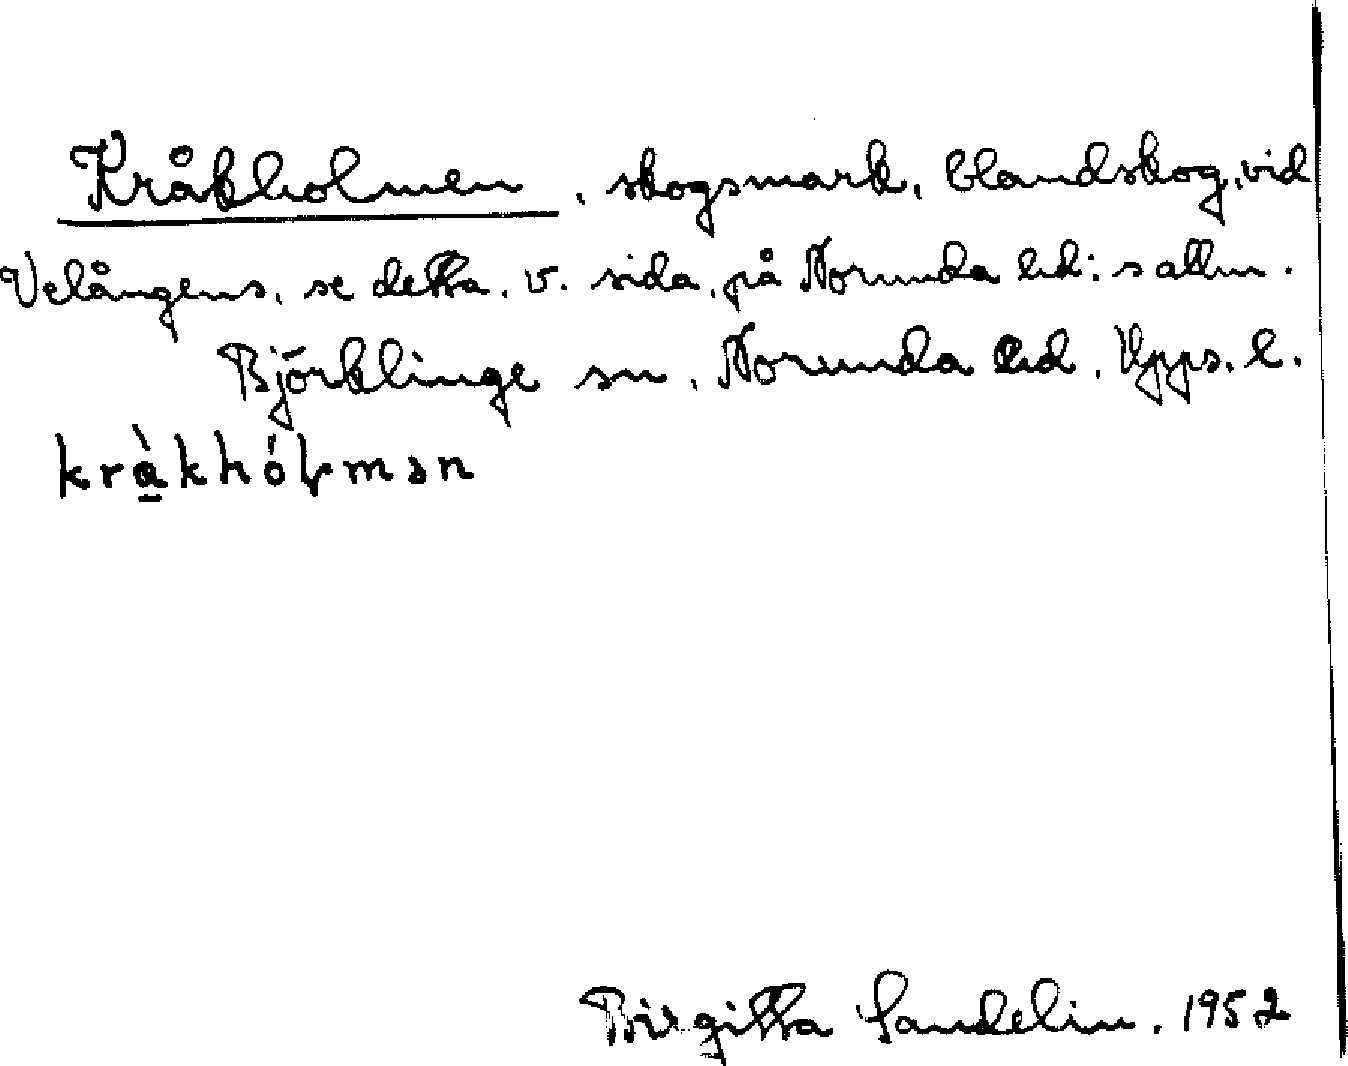 Kråkholmen, skogsmark, blandskog, vid
Velångens, se detta, v. sida, på Norunda hd:s allm.
Björklinge sn, Norunda hd, Upps. l.
krà̱khóɫmən
Birgitta Sandelin. 1952